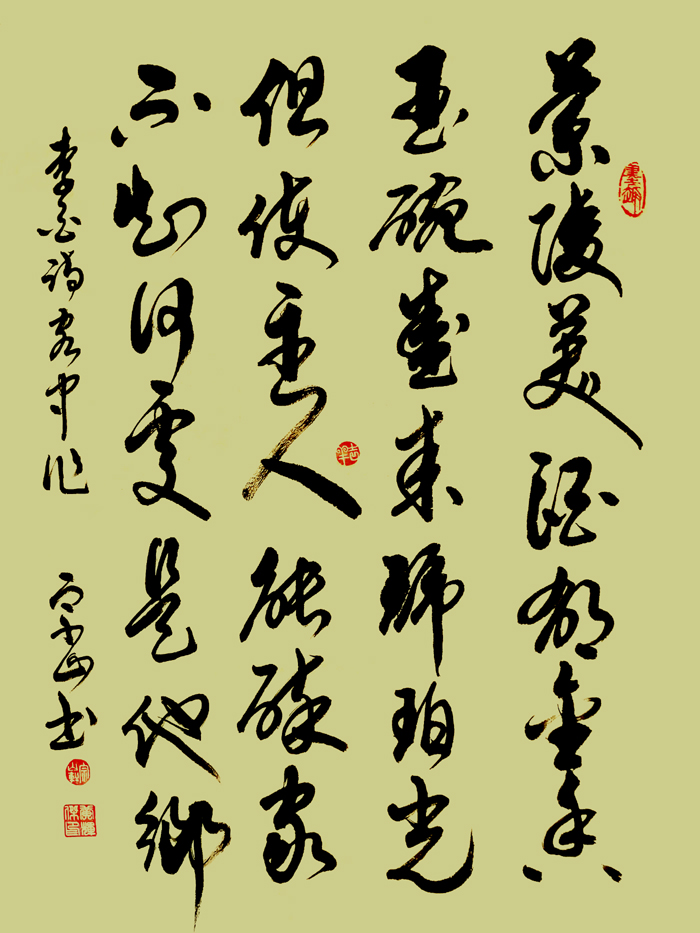 蘭陵美酒郁金香
玉碗盛来琥珀光
但使主人能醉客
不知何處是他鄉
李白詩客中作 书